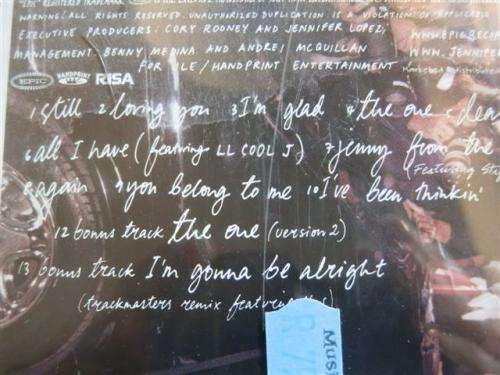 WARNING: ALL RIGHTS RESERVED. UNAUTHORIZED DUPLICATION IS A VIOLATION OF APPLICABLE
EXECUTIVE PRODUCERS: CORY ROONEY AND JENNIFER LOPEZ, WWW.EPICRECO
MANAGEMENT BENNY MEDINA AND ANDREI MCQUILLAN WWW.JENNIFE
FOR ILE/HANDPRINT ENTERTAINMENT
EPIC HANDPRINT RISA
1 still 2 loving you 3 I'm glad 4 the one 5 dea
6 all I have (featuring LL COOL J) 7 jenny from the
(Featuring Sty
8 again 9 you belong to me 10 I've been thinkin'
12 bonus track the one (version 2)
13 bonus track I'm gonna be alright
(trackmasters remix featuring
Mus